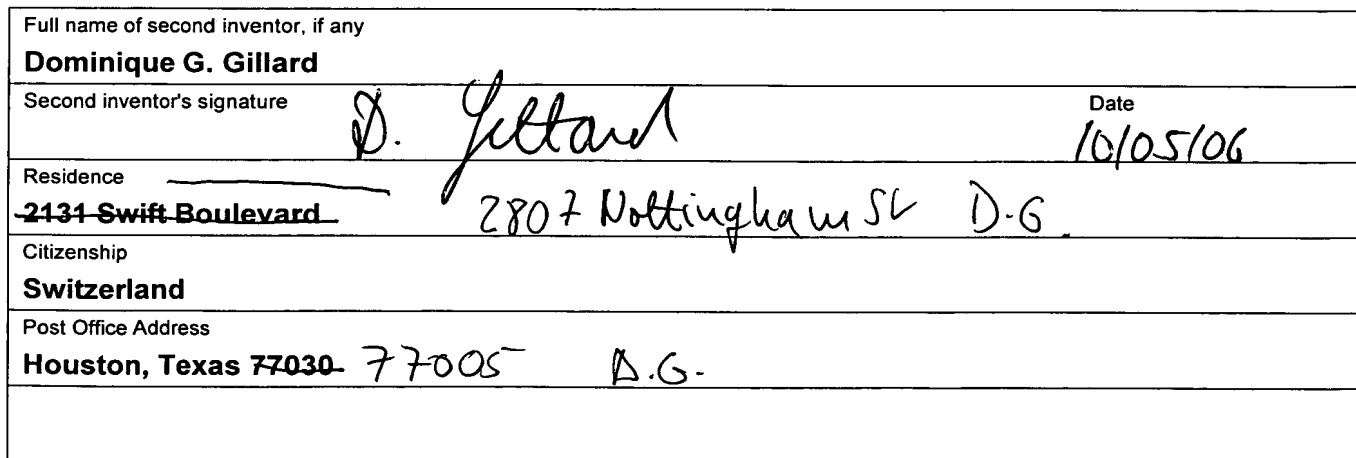 Full name of second inventor, if any
Dominique G. Gillard
Second inventor's signature D. Gillard Date
10/05/06
Residence
2131 Swift Boulevard 2807 Nottingham St D.G.
Citizenship
Switzerland
Post Office Address
Houston, Texas 77030 77005 D.G.